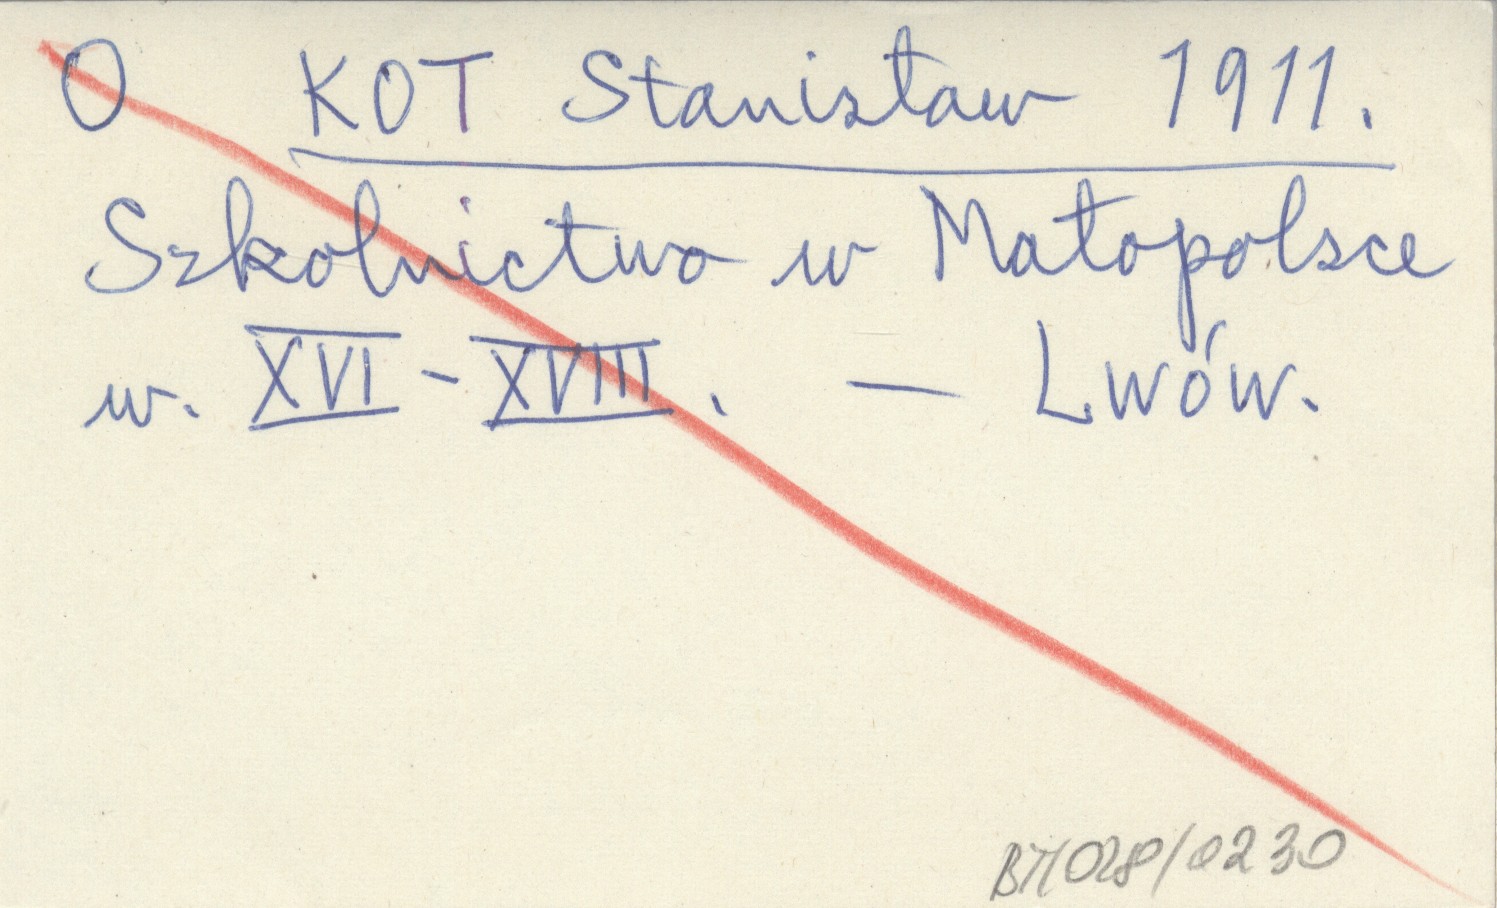 O KOT Stanisław 1911.
Szkolnictwo w Małopolsce
w. XVI - XVIII. — Lwów.
/0230